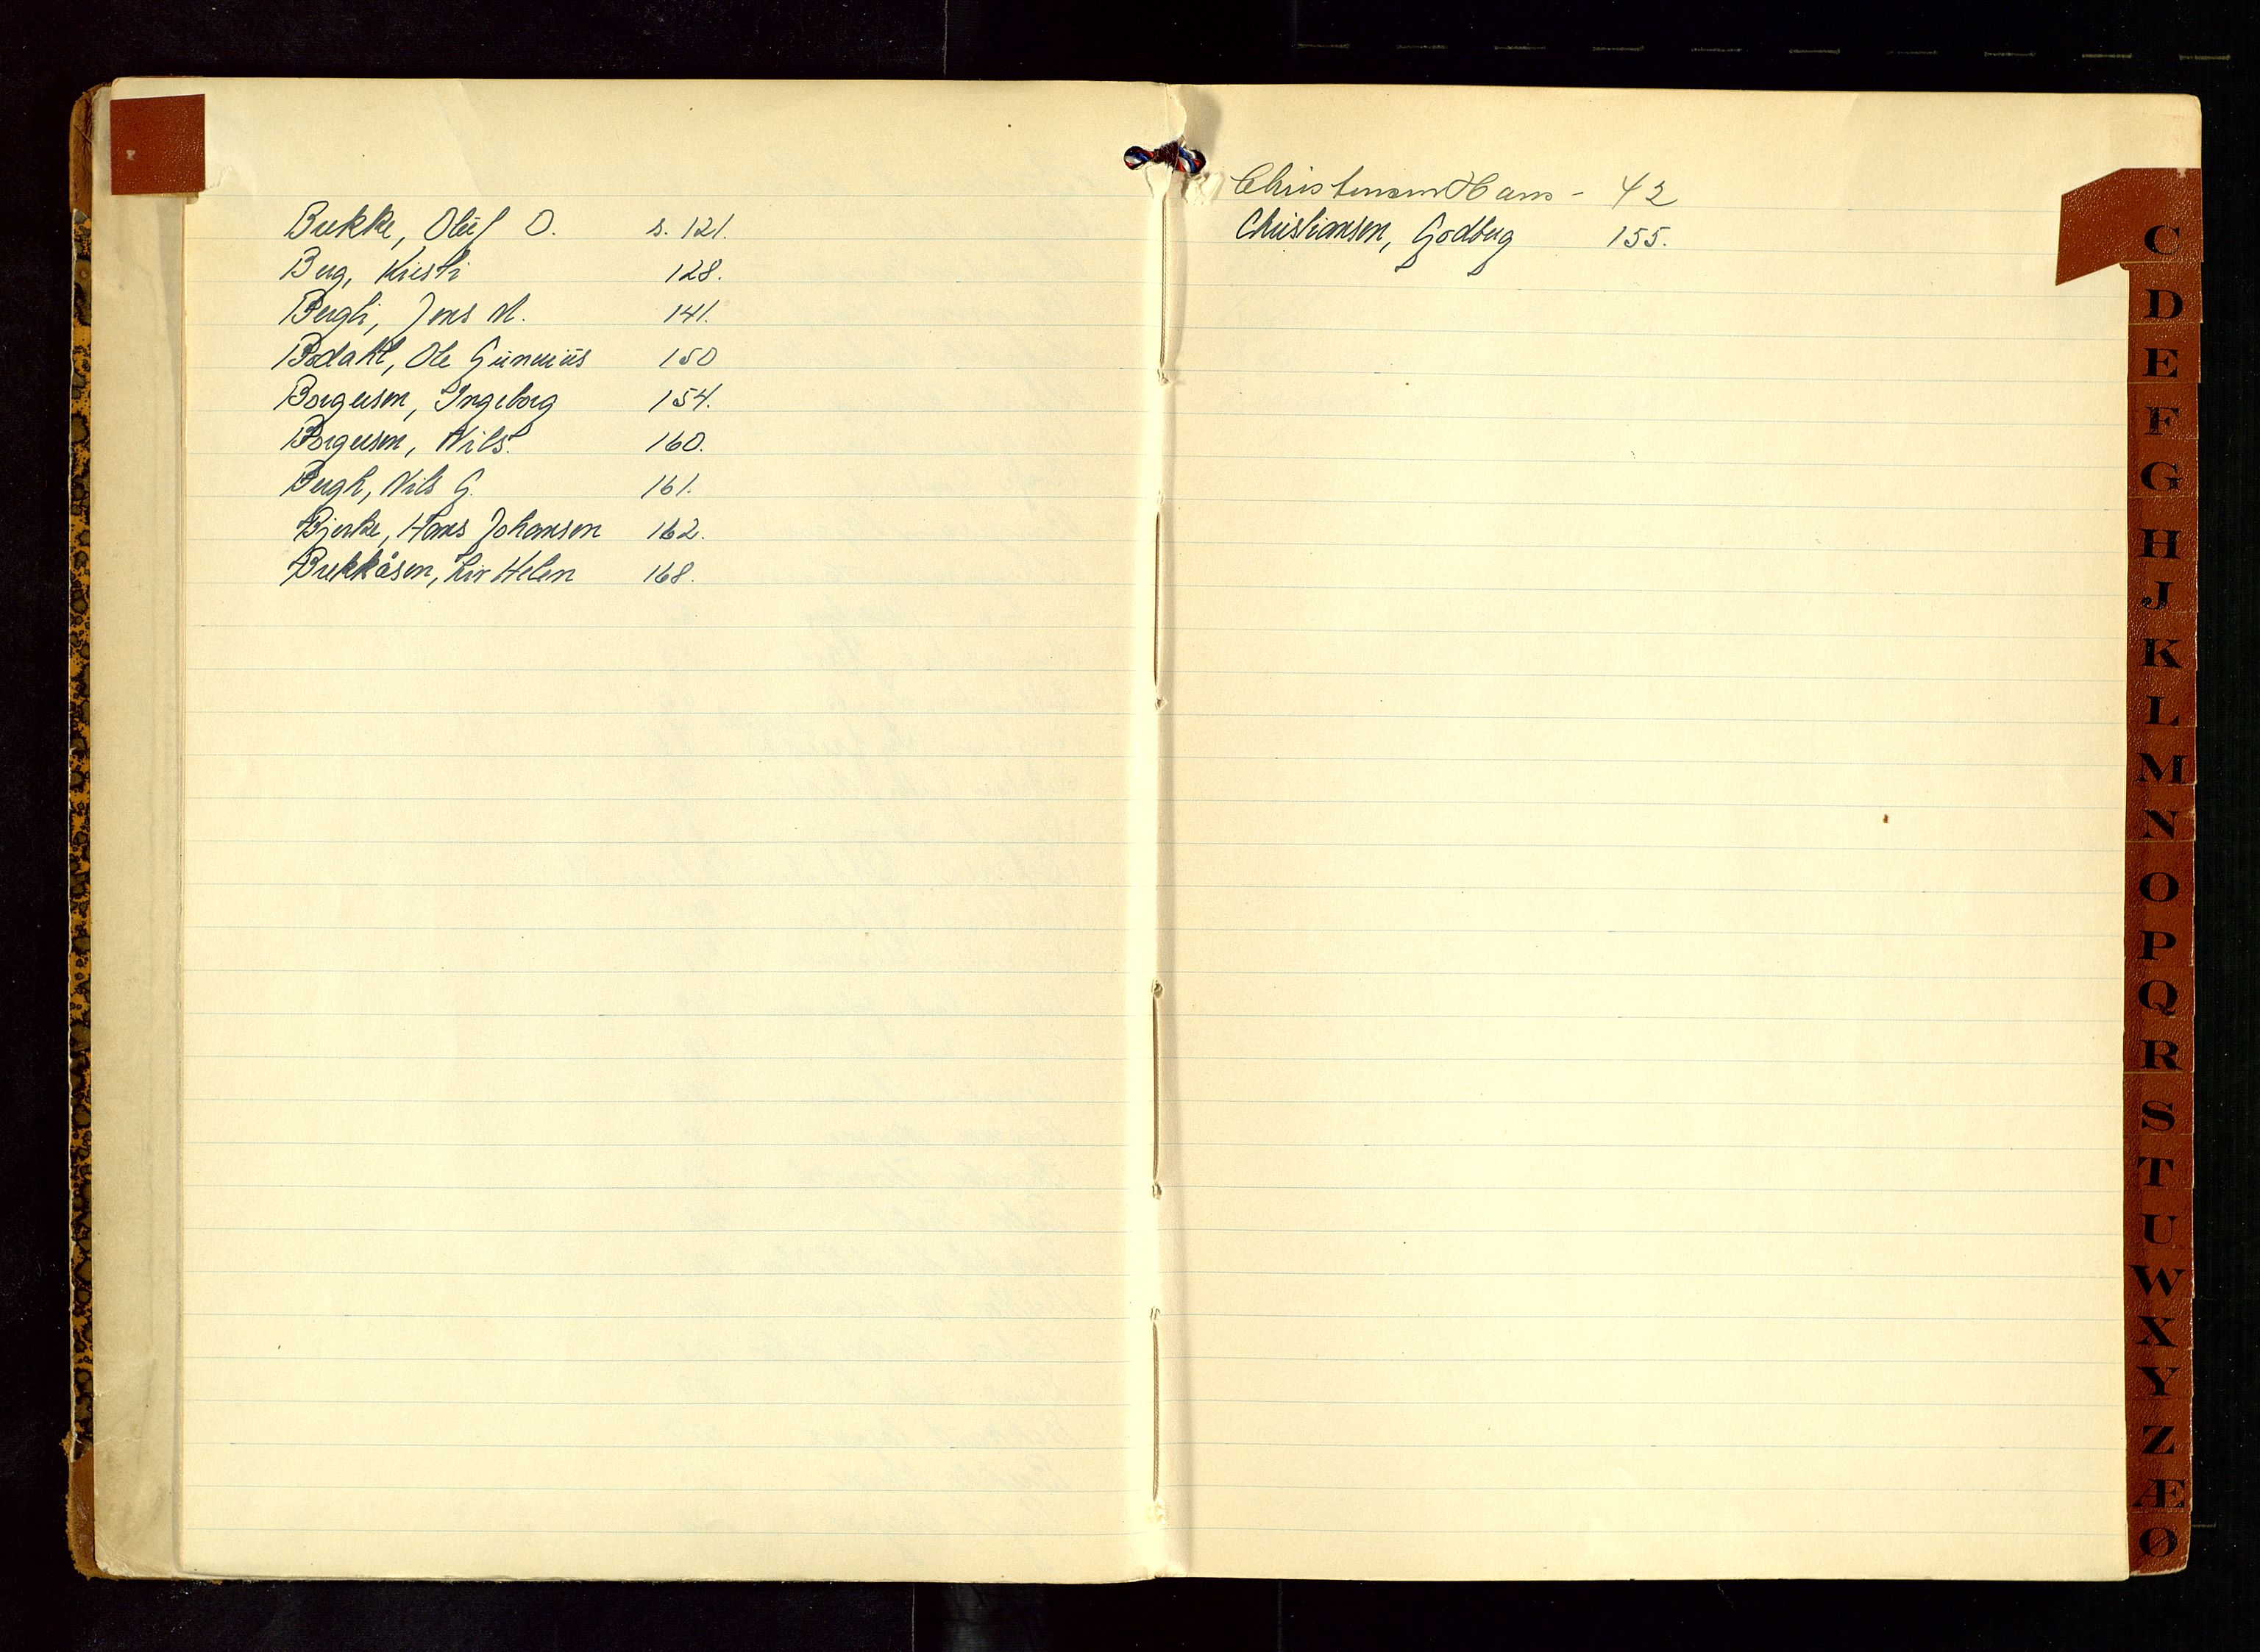 Brekke, Oluf O. s. 121.
Berg, Kirsti 128.
Bergli, Jens M. 141.
Bodahl, Ole Gunerius 150
Borgersen, Ingeborg 154.
Borgersen, Nils. 160.
Bergh, Nils G. 161.
Bjerke, Hans Johansen 162.
Brekkåsen, Liv Helen 168.
Christensen Hans - 42
Christiansen, Godberg 155.
C
D
E
F
G
H
J
K
L
M
N
O
P
Q
R
S
T
U
W
X
Y
Z
Æ
Ø